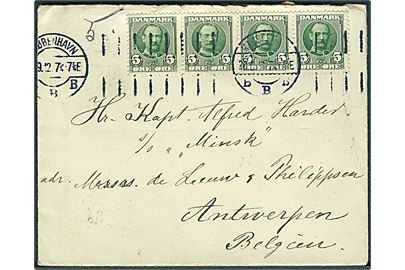 DANMARK DANMARK DANMARK DANMARK
5 5 5 5 5 5 5 5
ØRE ØRE ØRE ØRE ØRE ØRE ØRE ØRE
KØBENHAVN
B B
B B B
Hr. Kapt. Alfred Harder
S/s "Minsk"
adr. Messrs. de Leeuw & Philippsen
Antwerpen
Belgien.